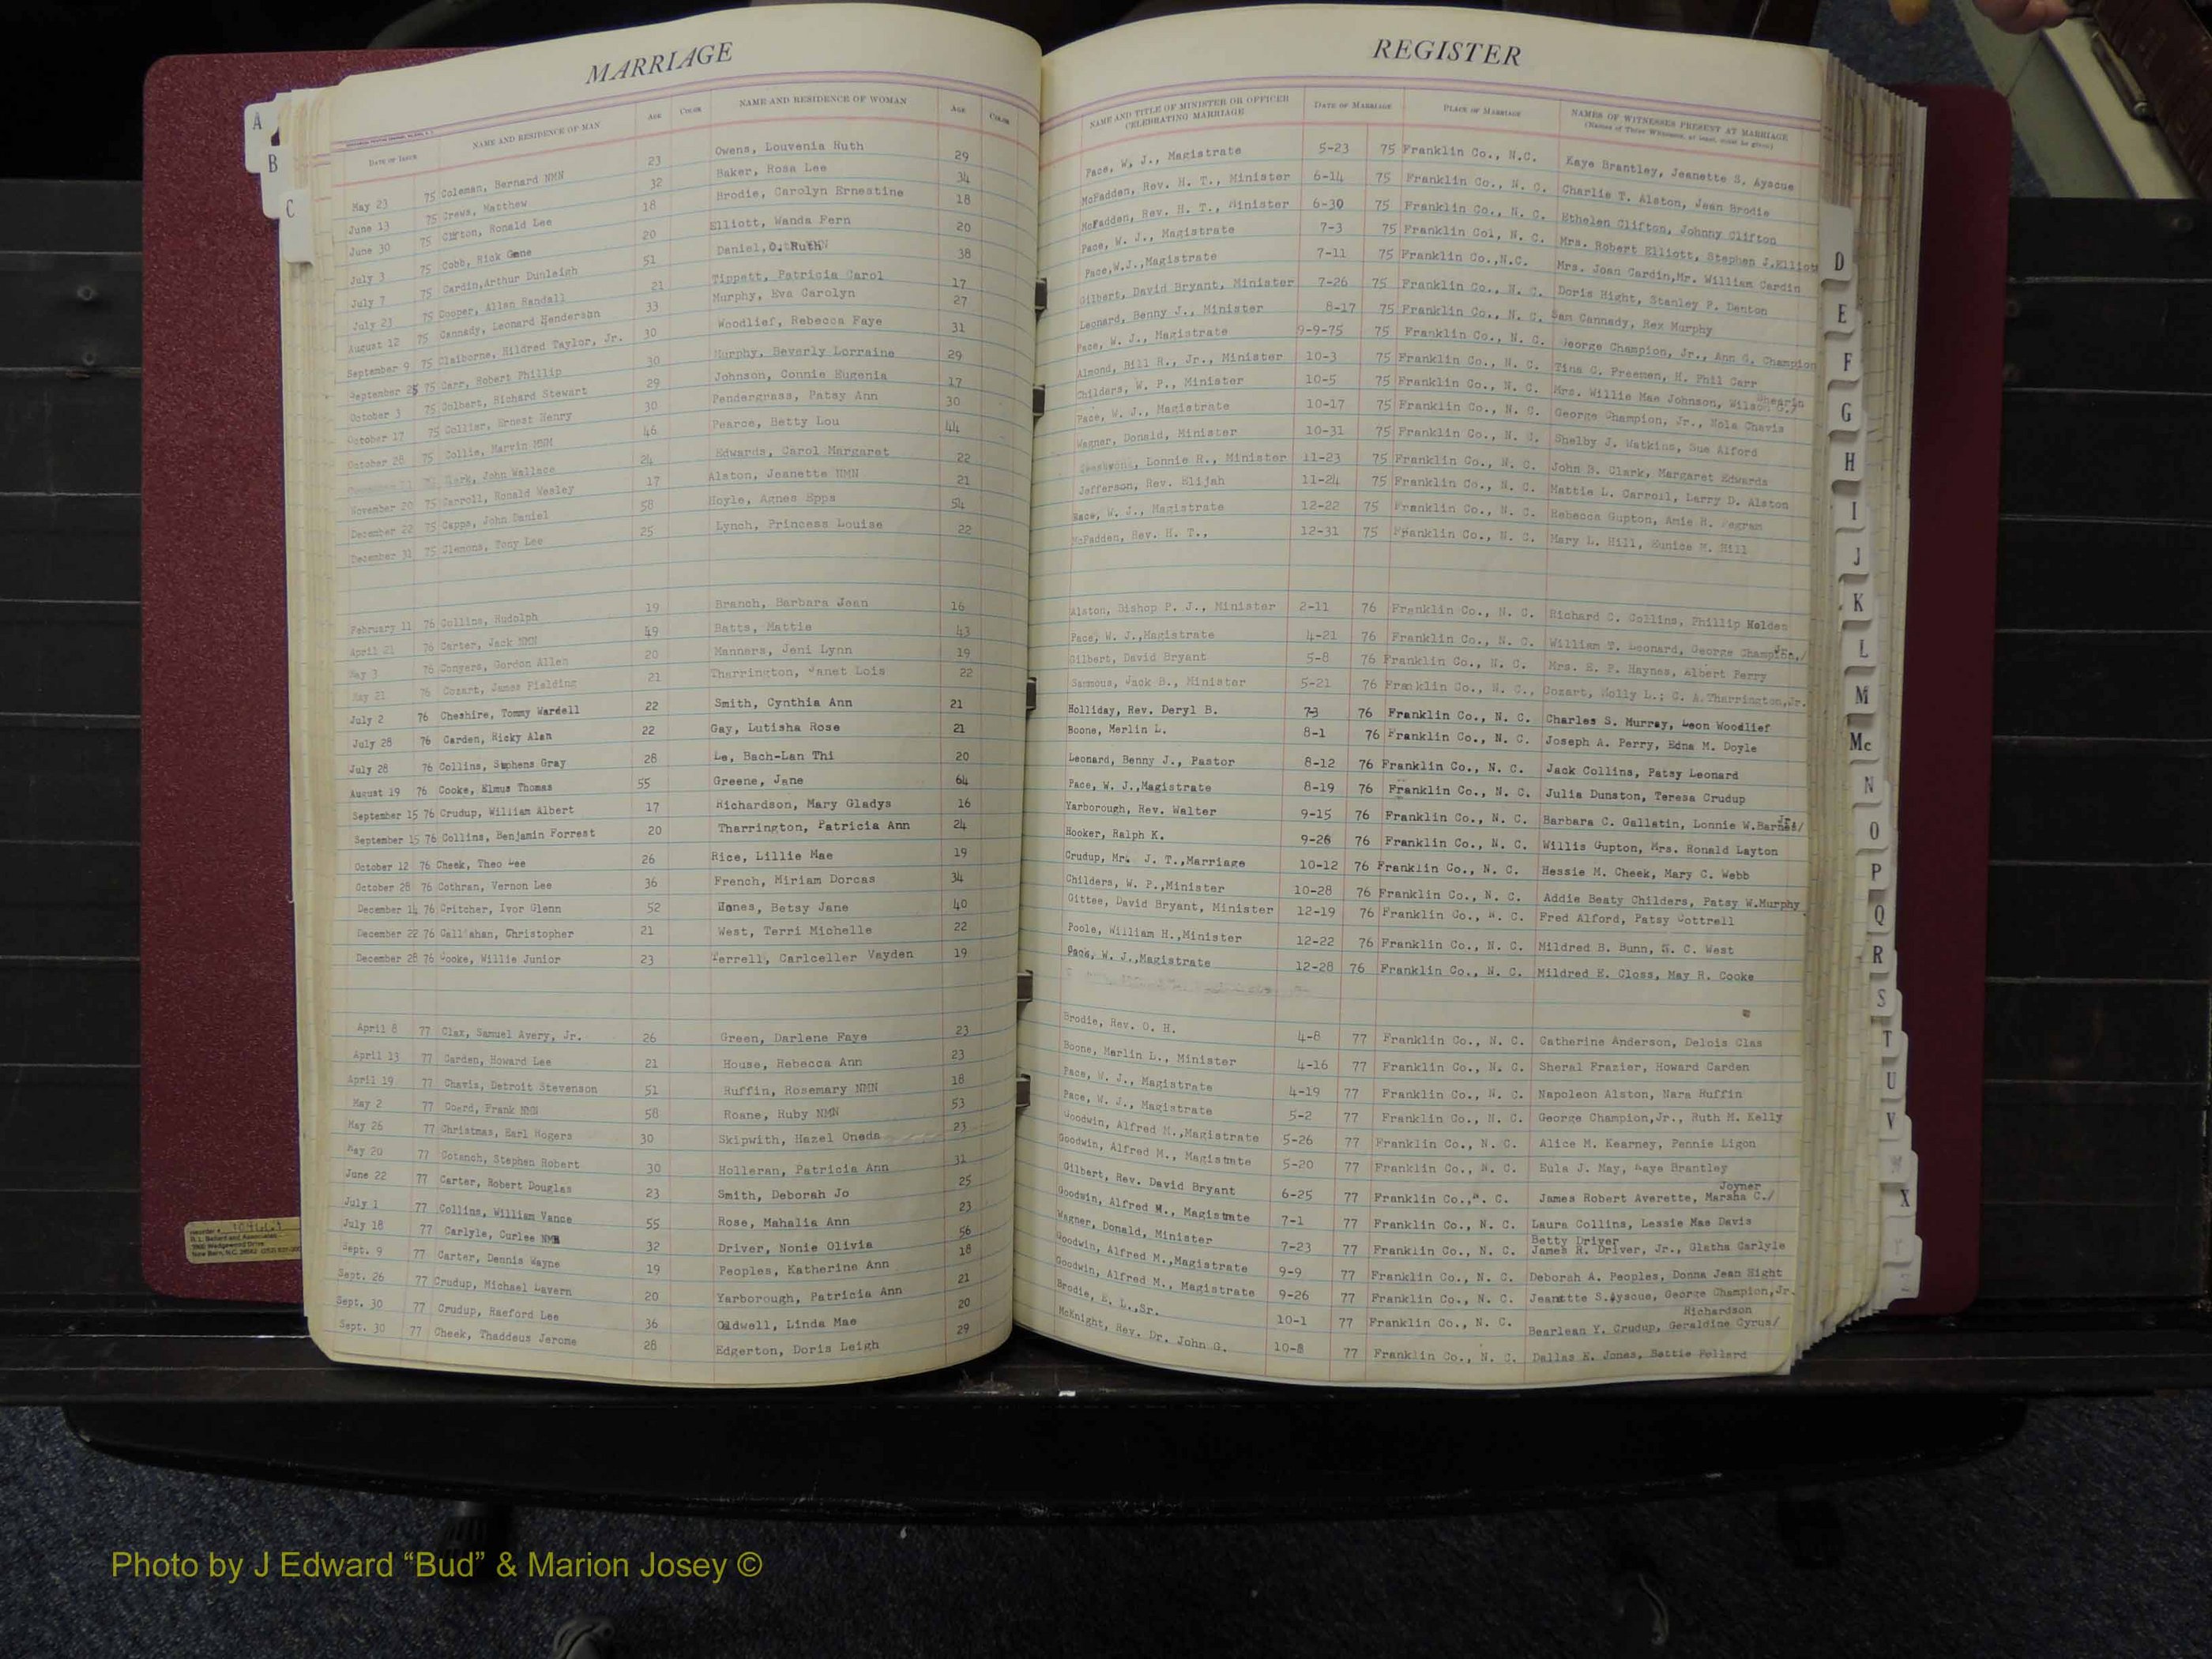 MARRIAGE
DATE OF ISSUE NAME AND RESIDENCE OF MAN AGE COLOR NAME AND RESIDENCE OF WOMAN AGE COLOR
May 23 75 Coleman, Bernard NMN 23 Owens, Louvenia Ruth 29
June 13 75 Crews, Matthew 32 Baker, Rosa Lee 34
June 30 75 Clifton, Ronald Lee 18 Brodie, Carolyn Ernestine 18
July 3 75 Cobb, Rick Gene 20 Elliott, Wanda Fern 20
July 7 75 Cardin,Arthur Dunleigh 51 Daniel,O. Ruth 38
July 23 75 Cooper, Allen Randall 21 Tippett, Patricia Carol 17
August 12 75 Cannady, Leonard Henderson 33 Murphy, Eva Carolyn 27
September 9 75 Claiborne, Hildred Taylor, Jr. 30 Woodlief, Rebecca Faye 31
September 25 75 Carr, Robert Phillip 30 Murphy, Beverly Lorraine 29
October 3 75 Colbert, Richard Stewart 29 Johnson, Connie Eugenia 17
October 17 75 Collier, Ernest Henry 30 Pendergrass, Patsy Ann 30
October 28 75 Collis, Marvin NMN 46 Pearce, Betty Lou 44
Clark, John Wallace 24 Edwards, Carol Margaret 22
November 20 75 Carroll, Ronald Wesley 17 Alston, Jeanette NMN 21
December 22 75 Capps, John Daniel 58 Hoyle, Agnes Epps 54
December 31 75 Clemons, Tony Lee 25 Lynch, Princess Louise 22
February 11 76 Collins, Rudolph 19 Branch, Barbara Jean 16
April 21 76 Carter, Jack NMN 49 Batts, Mattie 43
May 3 76 Conyers, Gordon Allen 20 Manners, Jeni Lynn 19
May 21 76 Cozart, James Fielding 21 Tharrington, Janet Lois 22
July 2 76 Cheshire, Tommy Wardell 22 Smith, Cynthia Ann 21
July 28 76 Carden, Ricky Alan 22 Gay, Lutisha Rose 21
July 28 76 Collins, Stphens Gray 28 Le, Bach-Lan Thi 20
August 19 76 Cooke, Elmus Thomas 55 Greene, Jane 64
September 15 76 Crudup, William Albert 17 Richardson, Mary Gladys 16
September 15 76 Collins, Benjamin Forrest 20 Tharrington, Patricia Ann 24
October 12 76 Cheek, Theo Lee 26 Rice, Lillie Mae 19
October 28 76 Cothran, Vernon Lee 36 French, Miriam Dorcas 34
December 14 76 Critcher, Ivor Glenn 52 Hones, Betsy Jane 40
December 22 76 Callahan, Christopher 21 West, Terri Michelle 22
December 28 76 Cooke, Willie Junior 23 Terrell, Carlceller Vayden 19
April 8 77 Clax, Samuel Avery, Jr. 26 Green, Darlene Faye 23
April 13 77 Carden, Howard Lee 21 House, Rebecca Ann 23
April 19 77 Chavis, Detroit Stevenson 51 Ruffin, Rosemary NMN 18
May 2 77 Coard, Frank NMN 58 Roane, Ruby NMN 53
May 26 77 Christmas, Earl Rogers 30 Skipwith, Hazel Oneda 23
May 20 77 Cotanch, Stephen Robert 30 Holleran, Patricia Ann 31
June 22 77 Carter, Robert Douglas 23 Smith, Deborah Jo 25
July 1 77 Collins, William Vance 55 Rose, Mahalia Ann 23
July 18 77 Carlyle, Curlee NMN 32 Driver, Nonie Olivia 56
Sept. 9 77 Carter, Dennis Wayne 19 Peoples, Katherine Ann 18
Sept. 26 77 Crudup, Michael Lavern 20 Yarborough, Patricia Ann 21
Sept. 30 77 Crudup, Raeford Lee 36 Oldwell, Linda Mae 20
Sept. 30 77 Cheek, Thaddeus Jerome 28 Edgerton, Doris Leigh 29
REGISTER
NAME AND TITLE OF MINISTER OR OFFICER CELEBRATING MARRIAGE DATE OF MARRIAGE PLACE OF MARRIAGE NAMES OF WITNESSES PRESENT AT MARRIAGE
(Names of Three Witnesses, at least, must be given)
Pace, W. J., Magistrate 5-23 75 Franklin Co., N.C. Kaye Brantley, Jeanette S. Ayscue
McFadden, Rev. H. T., Minister 6-14 75 Franklin Co., N. C. Charlie T. Alston, Jean Brodie
McFadden, Rev. H. T., Minister 6-30 75 Franklin Co., N. C. Ethelen Clifton, Johnny Clifton
Pace, W. J., Magistrate 7-3 75 Franklin Col, N. C. Mrs. Robert Elliott, Stephen J.Elliott
Pace,W.J.,Magistrate 7-11 75 Franklin Co.,N.C. Mrs. Joan Cardin,Mr. William Cardin
Gilbert, David Bryant, Minister 7-26 75 Franklin Co., N. C. Doris Hight, Stanley P. Denton
Leonard, Benny J., Minister 8-17 75 Franklin Co., N. C. Sam Cannady, Rex Murphy
Pace, W. J., Magistrate 9-9-75 75 Franklin Co., N. C. George Champion, Jr., Ann G. Champion
Almond, Bill R., Jr., Minister 10-3 75 Franklin Co., N. C. Tina C. Freemen, H. Phil Carr
Childers, W. P., Minister 10-5 75 Franklin Co., N. C. Mrs. Willie Mae Johnson, Wilson G./ Shearin
Pace, W. J., Magistrate 10-17 75 Franklin Co., N. C. George Champion, Jr., Nola Chavis
Wagner, Donald, Minister 10-31 75 Franklin Co., N. C. Shelby J. Watkins, Sue Alford
Lonnie R., Minister 11-23 75 Franklin Co., N. C. John B. Clark, Margaret Edwards
Jefferson, Rev. Elijah 11-24 75 Franklin Co., N. C. Mattie L. Carroll, Larry D. Alston
Pace, W. J., Magistrate 12-22 75 Franklin Co., N. C. Rebecca Gupton, Amie H. Pegram
McFadden, Rev. H. T., 12-31 75 Franklin Co., N. C. Mary L. Hill, Eunice M. Hill
Alston, Bishop P. J., Minister 2-11 76 Franklin Co., N. C. Richard C. Collins, Phillip Holden
Pace, W. J.,Magistrate 4-21 76 Franklin Co., N. C. William T. Leonard, George Champion,/ Jr.
Gilbert, David Bryant 5-8 76 Franklin Co., N. C. Mrs. E. P. Haynes, Albert Perry
Sammous, Jack B., Minister 5-21 76 Franklin Co., N. C., Cozart, Molly L.; C. A.Tharrington,Jr.
Holliday, Rev. Deryl B. 7-3 76 Franklin Co., N. C. Charles S. Murray, Leon Woodlief
Boone, Merlin L. 8-1 76 Franklin Co., N. C. Joseph A. Perry, Edna M. Doyle
Leonard, Benny J., Pastor 8-12 76 Franklin Co., N. C. Jack Collins, Patsy Leonard
Pace, W. J.,Magistrate 8-19 76 Franklin Co., N. C. Julia Dunston, Teresa Crudup
Yarborough, Rev. Walter 9-15 76 Franklin Co., N. C. Barbara C. Gallatin, Lonnie W.Barnes/ Jr.
Hooker, Ralph K. 9-26 76 Franklin Co., N. C. Willis Gupton, Mrs. Ronald Layton
Crudup, Mr. J. T.,Marriage 10-12 76 Franklin Co., N. C. Hessie M. Cheek, Mary C. Webb
Childers, W. P.,Minister 10-28 76 Franklin Co., N. C. Addie Beaty Childers, Patsy W.Murphy
Gittee, David Bryant, Minister 12-19 76 Franklin Co., N. C. Fred Alford, Patsy Cottrell
Poole, William H.,Minister 12-22 76 Franklin Co., N. C. Mildred B. Bunn, N. C. West
Pace, W. J.,Magistrate 12-28 76 Franklin Co., N. C. Mildred E. Closs, May R. Cooke
Brodie, Rev. O. H. 4-8 77 Franklin Co., N. C. Catherine Anderson, Delois Clas
Boone, Marlin L., Minister 4-16 77 Franklin Co., N. C Sheral Frazier, Howard Carden
Pace, W. J., Magistrate 4-19 77 Franklin Co., N. C. Napoleon Alston, Nara Ruffin
Pace, W. J., Magistrate 5-2 77 Franklin Co., N. C. George Champion,Jr., Ruth M. Kelly
Goodwin, Alfred M.,Magistrate 5-26 77 Franklin Co., N. C. Alice M. Kearney, Pennie Ligon
Goodwin, Alfred M., Magistrate 5-20 77 Franklin Co., N. C. Eula J. May, Kaye Brantley
Gilbert, Rev. David Bryant 6-25 77 Franklin Co., N. C. James Robert Averette, Marsha C./ Joyner
Goodwin, Alfred M., Magistrate 7-1 77 Franklin Co., N. C. Laura Collins, Lessie Mae Davis
Wagner, Donald, Minister 7-23 77 Franklin Co., N. C. Betty Driver James R. Driver, Jr., Glatha Carlyle
Goodwin, Alfred M.,Magistrate 9-9 77 Franklin Co., N. C. Deborah A. Peoples, Donna Jean Hight
Goodwin, Alfred M., Magistrate 9-26 77 Franklin Co., N. C. Jeanette S.Ayscue, George Champion,Jr.
Brodie, E. L.,Sr. 10-1 77 Franklin Co., N. C. Bearlean Y. Crudup, Geraldine Cyrus/ Richardson
McKnight, Rev. Dr. John G. 10-8 77 Franklin Co., N. C. Dallas E. Jones, Bettie Pollard
A
B
C
D
E
F
G
H
I
J
K
L
M
Mc
N
O
P
Q
R
S
T
U
V
X
Photo by J Edward “Bud” & Marion Josey ©